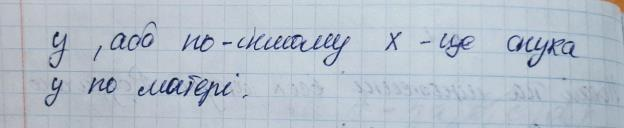 у , або по-іншому х - це онука
у по матері.